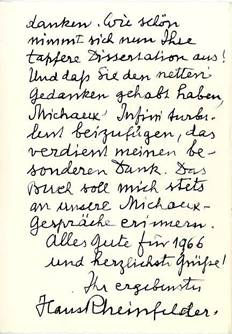 danken. Wie schön
nimmt sich nun Ihre
tapfere Dissertation aus!
Und daß Sie den netten
Gedanken gehabt haben,
Michaux' Infini turbu-
lent beizufügen, das
verdient meinen be-
sonderen Dank. Das
Buch soll mich stets
an unsere Michaux-
gespräche erinnern.
Alles Gute für 1966
und herzlichste Grüße!
Ihr ergebenster
Hans Rheinfelder.